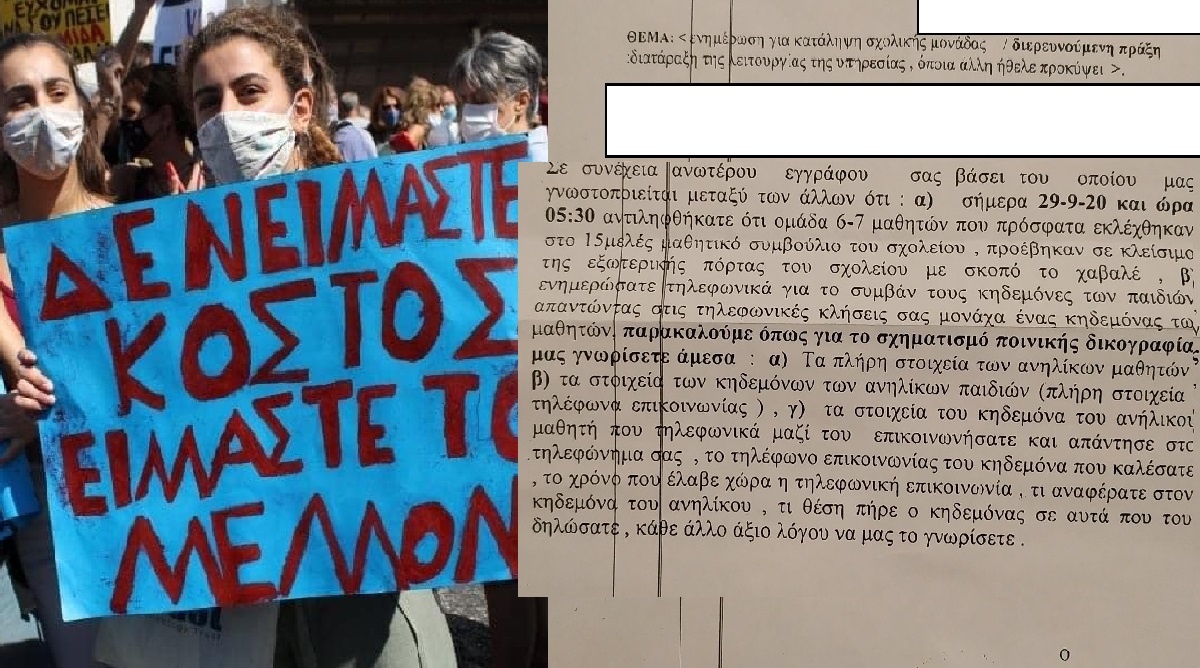 ΕΥΧΟΜΑ
ΝΑ ΤΟΥ ΠΕΣΕΙ
ΔΕ ΝΕΙΜΑΣΤΕ
ΚΟΣΤΟΣ
ΕΙΜΑΣΤΕ ΤΟ
ΜΕΛΛΟΝ
ΘΕΜΑ: < ενημέρωση για κατάληψη σχολικής μονάδας / διερευνούμενη πράξη
:διατάραξη της λειτουργίας της υπηρεσίας , όποια αλλη ήθελε προκύψει >.
Σε συνέχεια ανωτέρου εγγράφου σας βάσει του οποίου μας
γνωστοποιείται μεταξύ των άλλων ότι : α) σήμερα 29-9-20 και ώρα
05:30 αντιληφθήκατε ότι ομάδα 6-7 μαθητών που πρόσφατα εκλέχθηκαν
στο 15μελές μαθητικό συμβούλιο του σχολείου , προέβηκαν σε κλείσιμο
της εξωτερικής πόρτας του σχολείου με σκοπό το χαβαλέ , β)
ενημερώσατε τηλεφωνικά για το συμβάν τους κηδεμόνες των παιδιών
απαντώντας στις τηλεφωνικές κλήσεις σας μονάχα ένας κηδεμόνας τω
μαθητών, παρακαλούμε όπως για το σχηματισμό ποινικής δικογραφία
μας γνωρίσετε άμεσα : α) Τα πλήρη στοιχεία των ανηλίκων μαθητών
β) τα στοιχεία των κηδεμόνων των ανηλίκων παιδιών (πλήρη στοιχεία
τηλέφωνα επικοινωνίας ) , γ) τα στοιχεία του κηδεμόνα του ανήλικοι
μαθητή που τηλεφωνικά μαζί του επικοινωνήσατε και απάντησε στο
τηλεφώνημα σας , το τηλέφωνο επικοινωνίας του κηδεμόνα που καλέσατε
, το χρόνο που έλαβε χώρα η τηλεφωνική επικοινωνία , τι αναφέρατε στον
κηδεμόνα του ανηλίκου , τι θέση πήρε ο κηδεμόνας σε αυτά που του
δηλώσατε , κάθε άλλο άξιο λόγου να μας το γνωρίσετε .
Ο